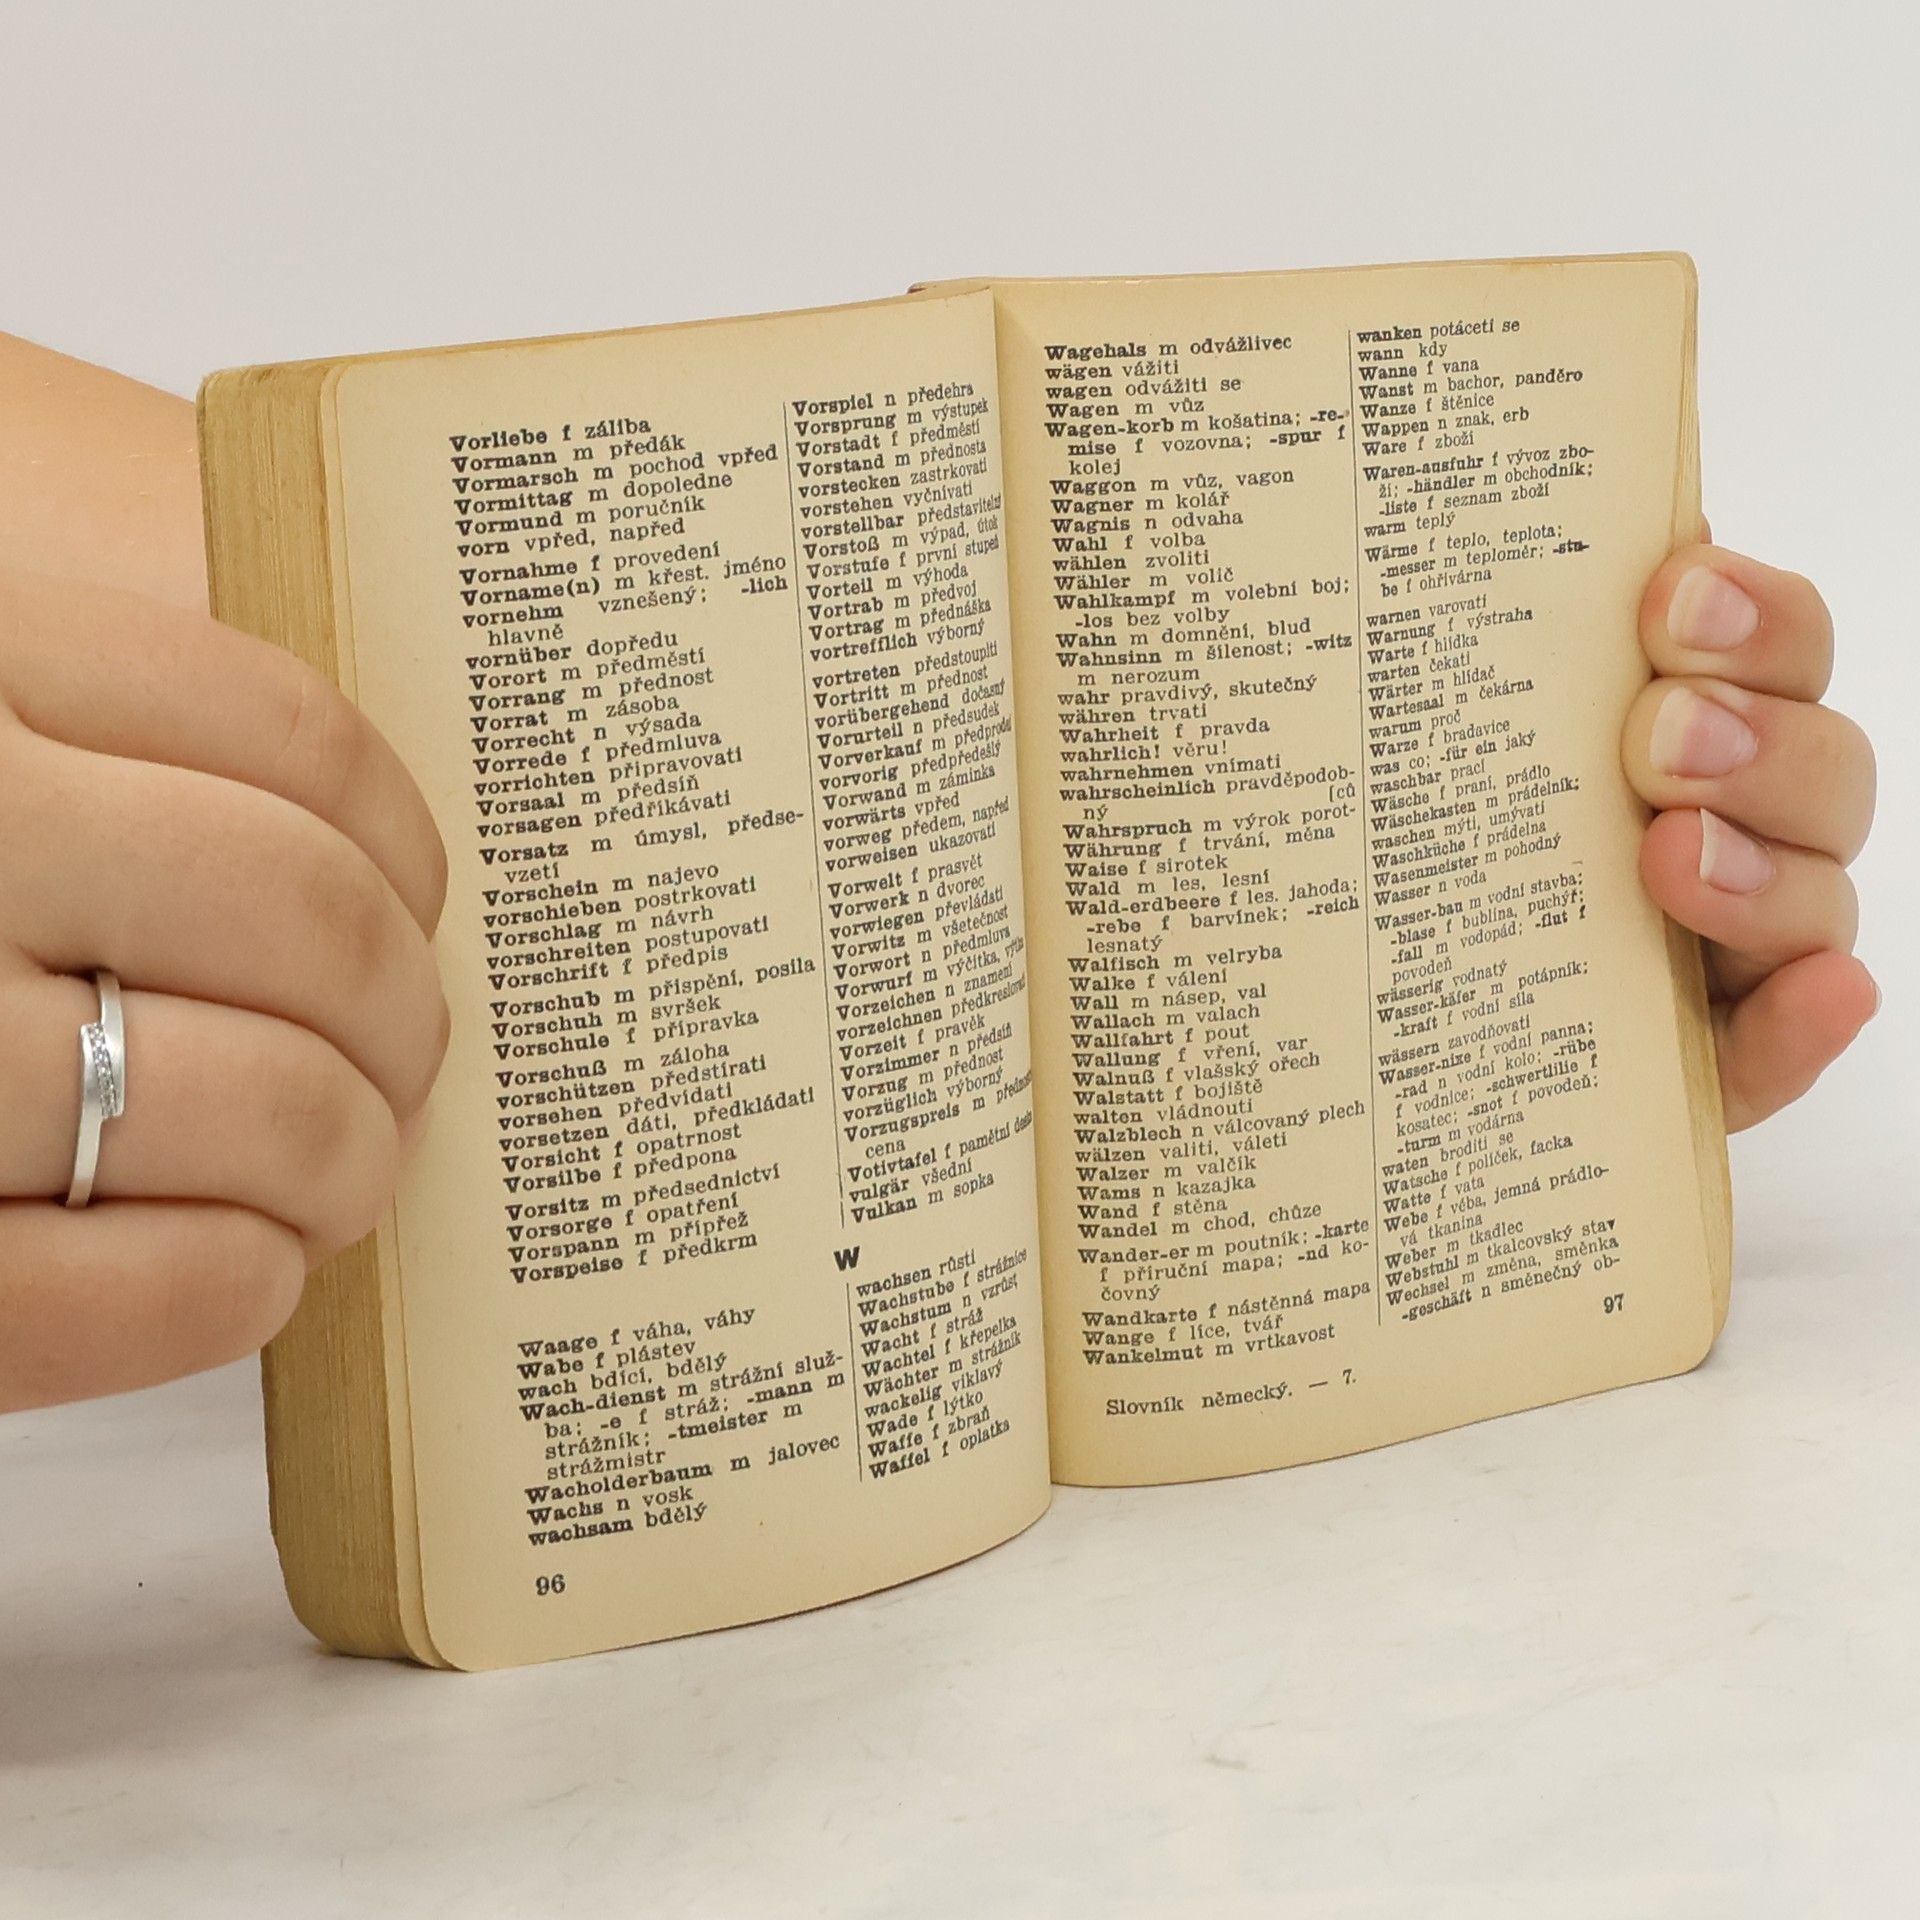 Vorliebe f záliba
Vormann m předák
Vormarsch m pochod vpřed
Vormittag m dopoledne
Vormund m poručník
vorn vpřed, napřed
Vornahme f provedení
Vorname(n) m křest. jméno
vornehm vznešený; -lich
hlavně
vornüber dopředu
Vorort m předměstí
Vorrang m přednost
Vorrat m zásoba
Vorrecht n výsada
Vorrede f předmluva
vorrichten připravovati
Vorsaal m předsíň
vorsagen předříkávati
Vorsatz m úmysl, předse-
vzetí
Vorschein m najevo
vorschieben postrkovati
Vorschlag m návrh
vorschreiten postupovati
Vorschrift f předpis
Vorschub m přispění, posila
Vorschuh m svršek
Vorschule f přípravka
Vorschuß m záloha
vorschützen předstírati
vorsehen předvídati
vorsetzen dáti, předkládati
Vorsicht f opatrnost
Vorsilbe f předpona
Vorsitz m předsednictví
Vorsorge f opatření
Vorspann m přípřež
Vorspeise f předkrm
Vorspiel n předehra
Vorsprung m výstupek
Vorstadt f předměstí
Vorstand m přednosta
vorstecken zastrkovati
vorstehen vyčnívati
vorstellbar představitelný
Vorstoß m výpad, útok
Vorstufe f první stupeň
Vorteil m výhoda
Vortrab m předvoj
Vortrag m přednáška
vortrefflich výborný
vortreten předstoupiti
Vortritt m přednost
vorübergehend dočasný
Vorurteil n předsudek
Vorverkauf m předprodej
vorvorig předpředešlý
Vorwand m záminka
vorwärts vpřed
vorweg předem, napřed
vorweisen ukazovati
Vorwelt f prasvět
Vorwerk n dvorec
vorwiegen převládati
Vorwitz m všetečnost
Vorwort n předmluva
Vorwurf m výčitka,
Vorzeichen n znamení
vorzeichnen předkreslovati
Vorzeit f pravěk
Vorzimmer n předsíň
Vorzug m přednost
vorzüglich výborný
Vorzugspreis m
cena
Votivtafel f pamětní
vulgär všední
Vulkan m sopka
W
Waage f váha, váhy
Wabe f plástev
wach bdící, bdělý
Wach-dienst m strážní služ-
ba; -e f stráž; -mann m
strážník; -tmeister m
strážmistr
Wacholderbaum m jalovec
Wachs n vosk
wachsam bdělý
wachsen růsti
Wachstube f strážnice
Wachstum n vzrůst
Wacht f stráž
Wachtel f křepelka
Wächter m strážník
wackelig viklavý
Wade f lýtko
Waffe f zbraň
Waffel f oplatka
96
Wagehals m odvážlivec
wägen vážiti
wagen odvážiti se
Wagen m vůz
Wagen-korb m košatina; -re-
mise f vozovna; -spur f
kolej
Waggon m vůz, vagon
Wagner m kolář
Wagnis n odvaha
Wahl f volba
wählen zvoliti
Wähler m volič
Wahlkampf m volební boj;
-los bez volby
Wahn m domnění, blud
Wahnsinn m šílenost; -witz
m nerozum
wahr pravdivý, skutečný
währen trvati
Wahrheit f pravda
wahrlich! věru!
wahrnehmen vnímati
wahrscheinlich pravděpodob-
ný [ců
Wahrspruch m výrok porot-
Währung f trvání, měna
Waise f sirotek
Wald m les, lesní
Wald-erdbeere f les. jahoda;
-rebe f barvínek; -reich
lesnatý
Walfisch m velryba
Walke f válení
Wall m násep, val
Wallach m valach
Wallfahrt f pout
Wallung f vření, var
Walnuß f vlašský ořech
Walstatt f bojiště
walten vládnouti
Walzblech n válcovaný plech
wälzen valiti, váleti
Walzer m valčík
Wams n kazajka
Wand f stěna
Wandel m chod, chůze
Wander-er m poutník; -karte
f příruční mapa; -nd ko-
čovný
Wandkarte f nástěnná mapa
Wange f líce, tvář
Wankelmut m vrtkavost
wanken potáceti se
wann kdy
Wanne f vana
Wanst m bachor, panděro
Wanze f štěnice
Wappen n znak, erb
Ware f zboží
Waren-ausfuhr f vývoz zbo-
ží; -händler m obchodník;
-liste f seznam zboží
warm teplý
Wärme f teplo, teplota;
-messer m teploměr; -stu-
be f ohřívárna
warnen varovati
Warnung f výstraha
Warte f hlídka
warten čekati
Wärter m hlídač
Wartesaal m čekárna
warum proč
Warze f bradavice
was co; -für ein jaký
waschbar prací
Wäsche f praní, prádlo
Wäschekasten m prádelník;
waschen mýti, umývati
Waschküche f prádelna
Wasenmeister m pohodný
Wasser n voda
Wasser-bau m vodní stavba;
-blase f bublina, puchýř;
-fall m vodopád; -flut f
povodeň
wässerig vodnatý
Wasser-käfer m potápník;
-kraft f vodní síla
wässern zavodňovati
Wasser-nixe f vodní panna;
-rad n vodní kolo; -rübe
f vodnice; -schwertlilie f
kosatec; -snot f povodeň;
-turm m vodárna
waten broditi se
Watsche f políček, facka
Watte f vata
Webe f véba, jemná prádlo-
vá tkanina
Weber m tkadlec
Webstuhl m tkalcovský stav
Wechsel m změna, směnka
-geschäft n směnečný ob-
97
Slovník německý. — 7.